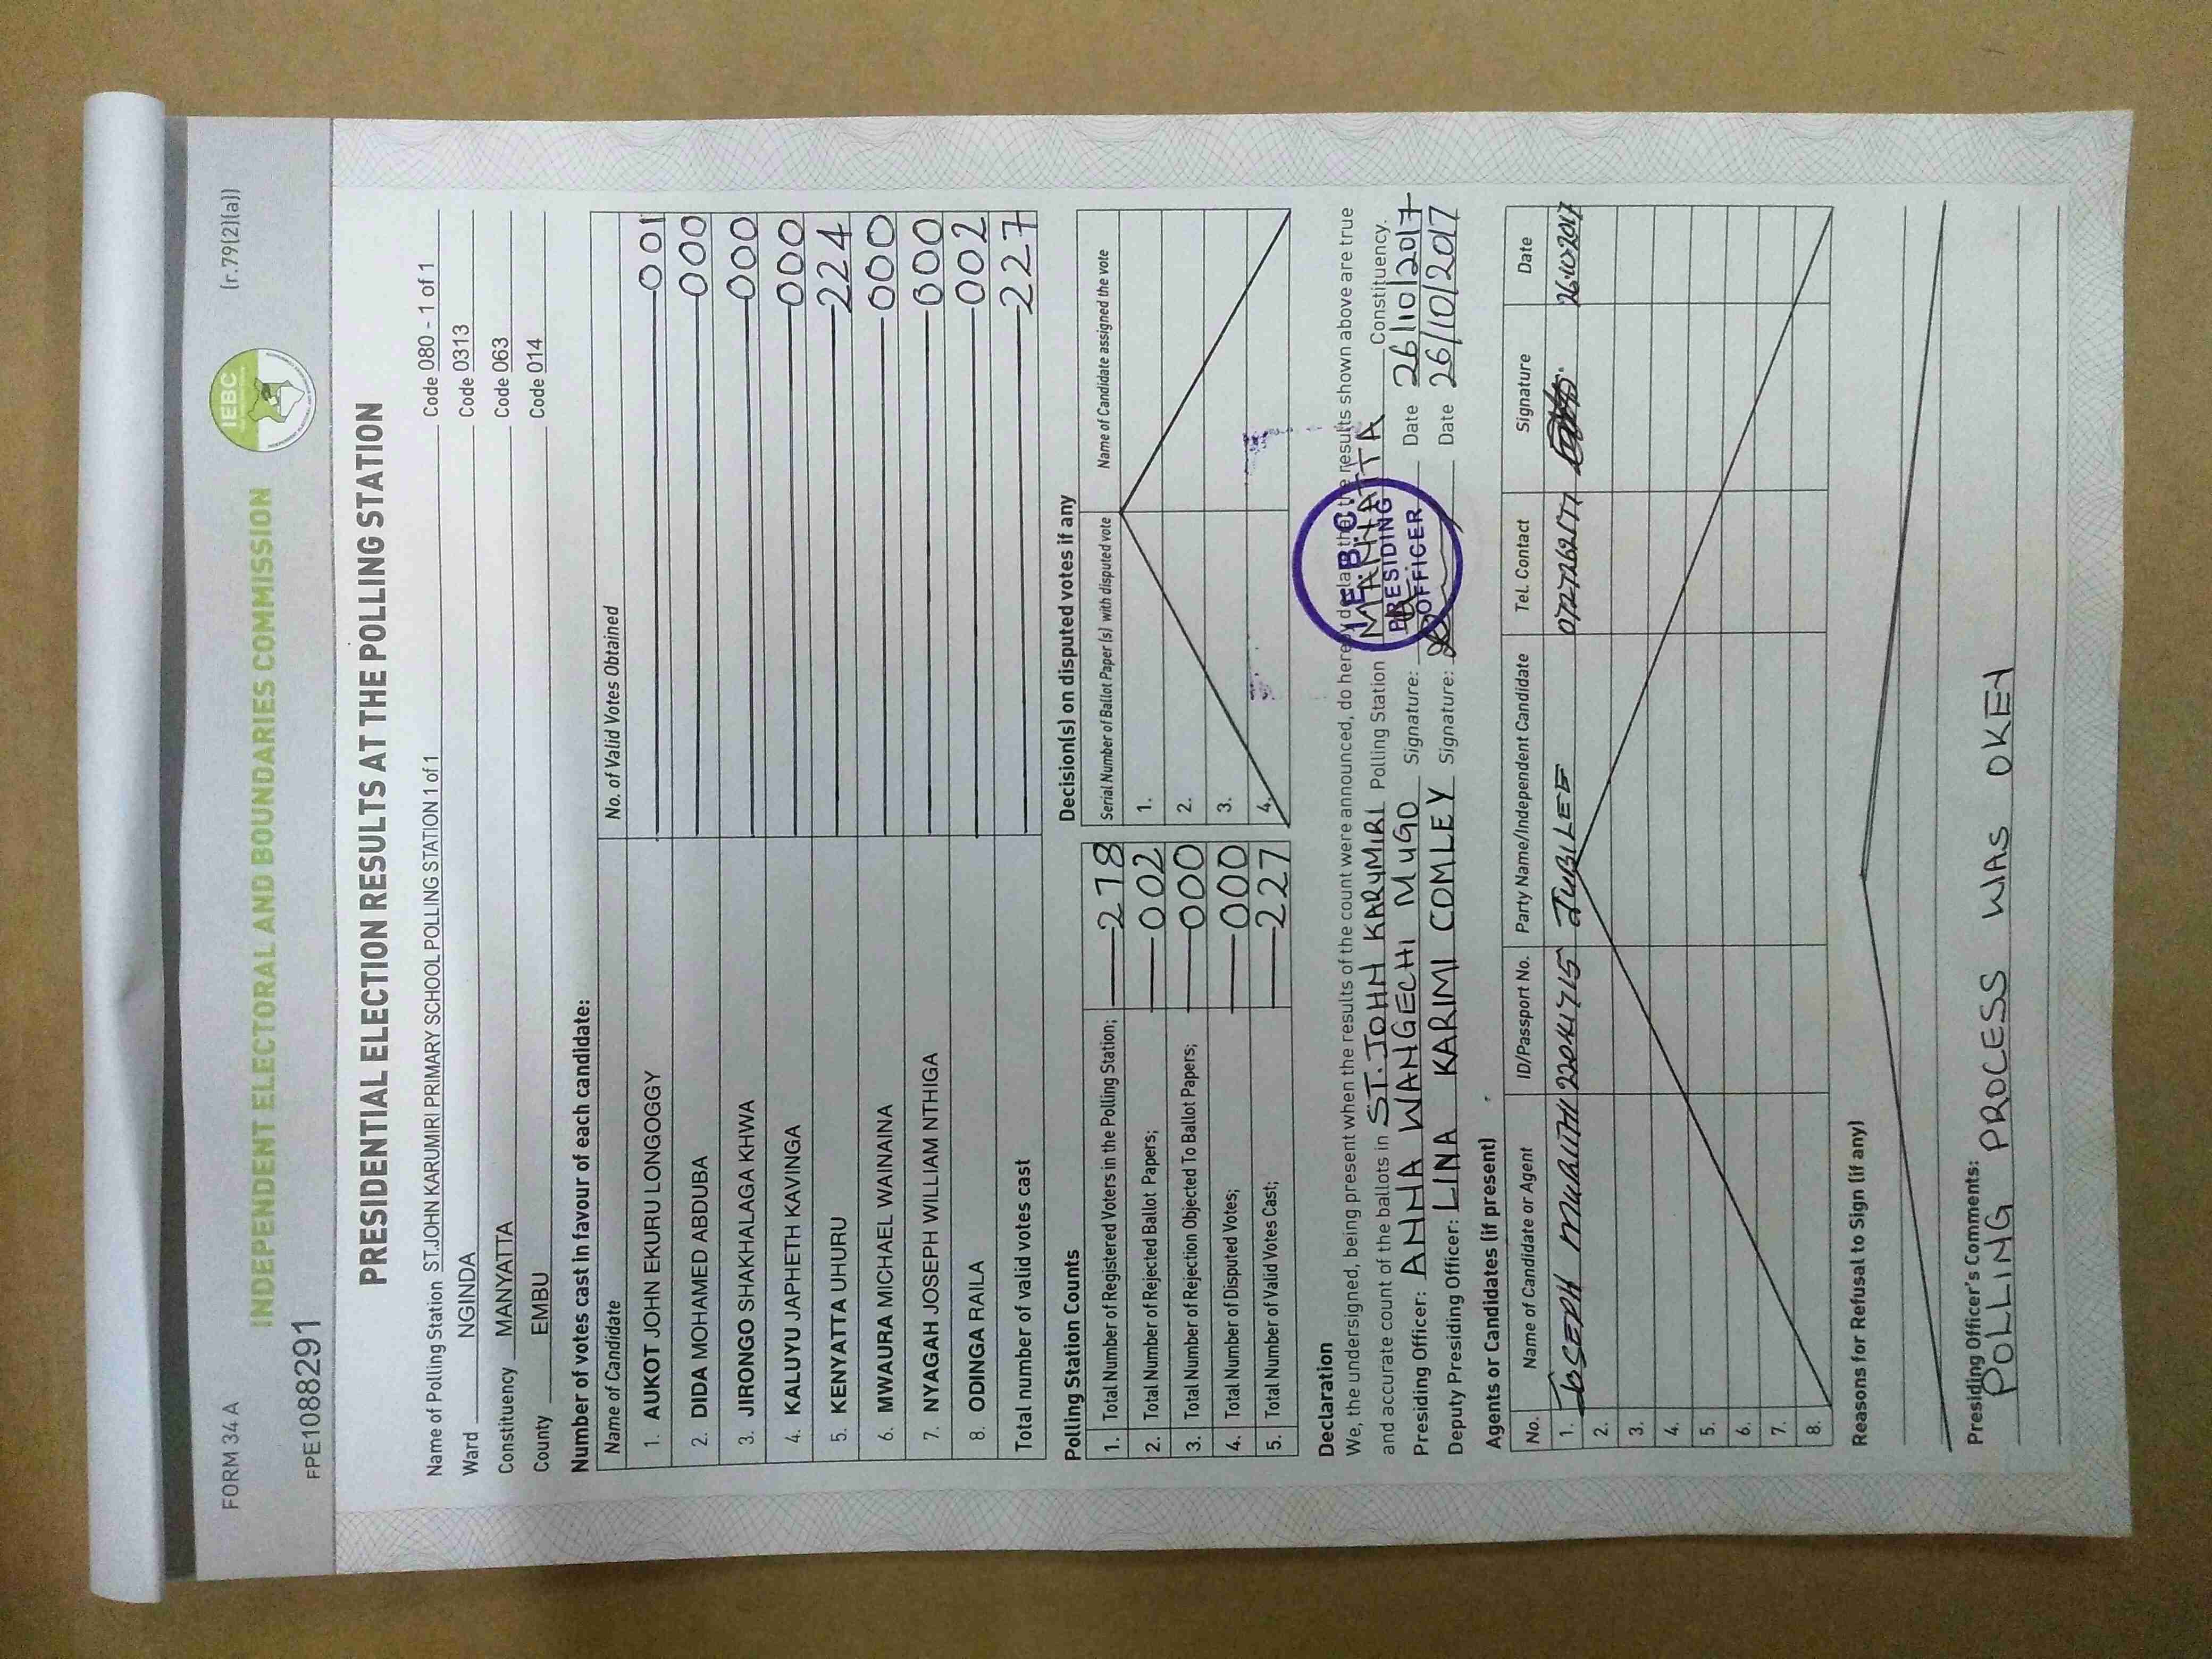 FORM 34 A
INDEPENDENT ELECTORAL AND BOUNDARIES COMMISSION
IEBC
(r.79(2)(a))
FPE1088291
PRESIDENTIAL ELECTION RESULTS AT THE POLLING STATION
Name of Polling Station ST.JOHN KARUMIRI PRIMARY SCHOOL POLLING STATION 1 of 1 Code 080 - 1 of 1
Ward NGINDA Code 0313
Constituency MANYATTA Code 063
County EMBU Code 014
Number of votes cast in favour of each candidate:
Name of Candidate No. of Valid Votes Obtained
1. AUKOT JOHN EKURU LONGOGGY 001
2. DIDA MOHAMED ABDUBA 000
3. JIRONGO SHAKHALAGA KHWA 000
4. KALUYU JAPHETH KAVINGA 000
5. KENYATTA UHURU 224
6. MWAURA MICHAEL WAINAINA 000
7. NYAGAH JOSEPH WILLIAM NTHIGA 000
8. ODINGA RAILA 002
Total number of valid votes cast 227
Polling Station Counts
1. Total Number of Registered Voters in the Polling Station; 278
2. Total Number of Rejected Ballot Papers; 002
3. Total Number of Rejection Objected To Ballot Papers; 000
4. Total Number of Disputed Votes; 000
5. Total Number of Valid Votes Cast; 227
Decision(s) on disputed votes if any
Serial Number of Ballot Paper (s) with disputed vote Name of Candidate assigned the vote
1.
2.
3.
4.
Declaration
We, the undersigned, being present when the results of the count were announced, do hereby declare that the results shown above are true
and accurate count of the ballots in ST. JOHN KARUMIRI Polling Station MANYATTA Constituency.
Presiding Officer: ANNA WANGECHI MUGO Signature: Date 26/10/2017
Deputy Presiding Officer: LINA KARIMI COMLEY Signature: Date 26/10/2017
I.E.B.C.
PRESIDING
OFFICER
Agents or Candidates (if present)
No. Name of Candidate or Agent ID/Passport No. Party Name/Independent Candidate Tel. Contact Signature Date
1. JOSEPH MURIITHI JUBILEE 26.10.2017
2.
3.
4.
5.
6.
7.
8.
Reasons for Refusal to Sign (if any)
Presiding Officer's Comments:
POLLING PROCESS WAS OKEY